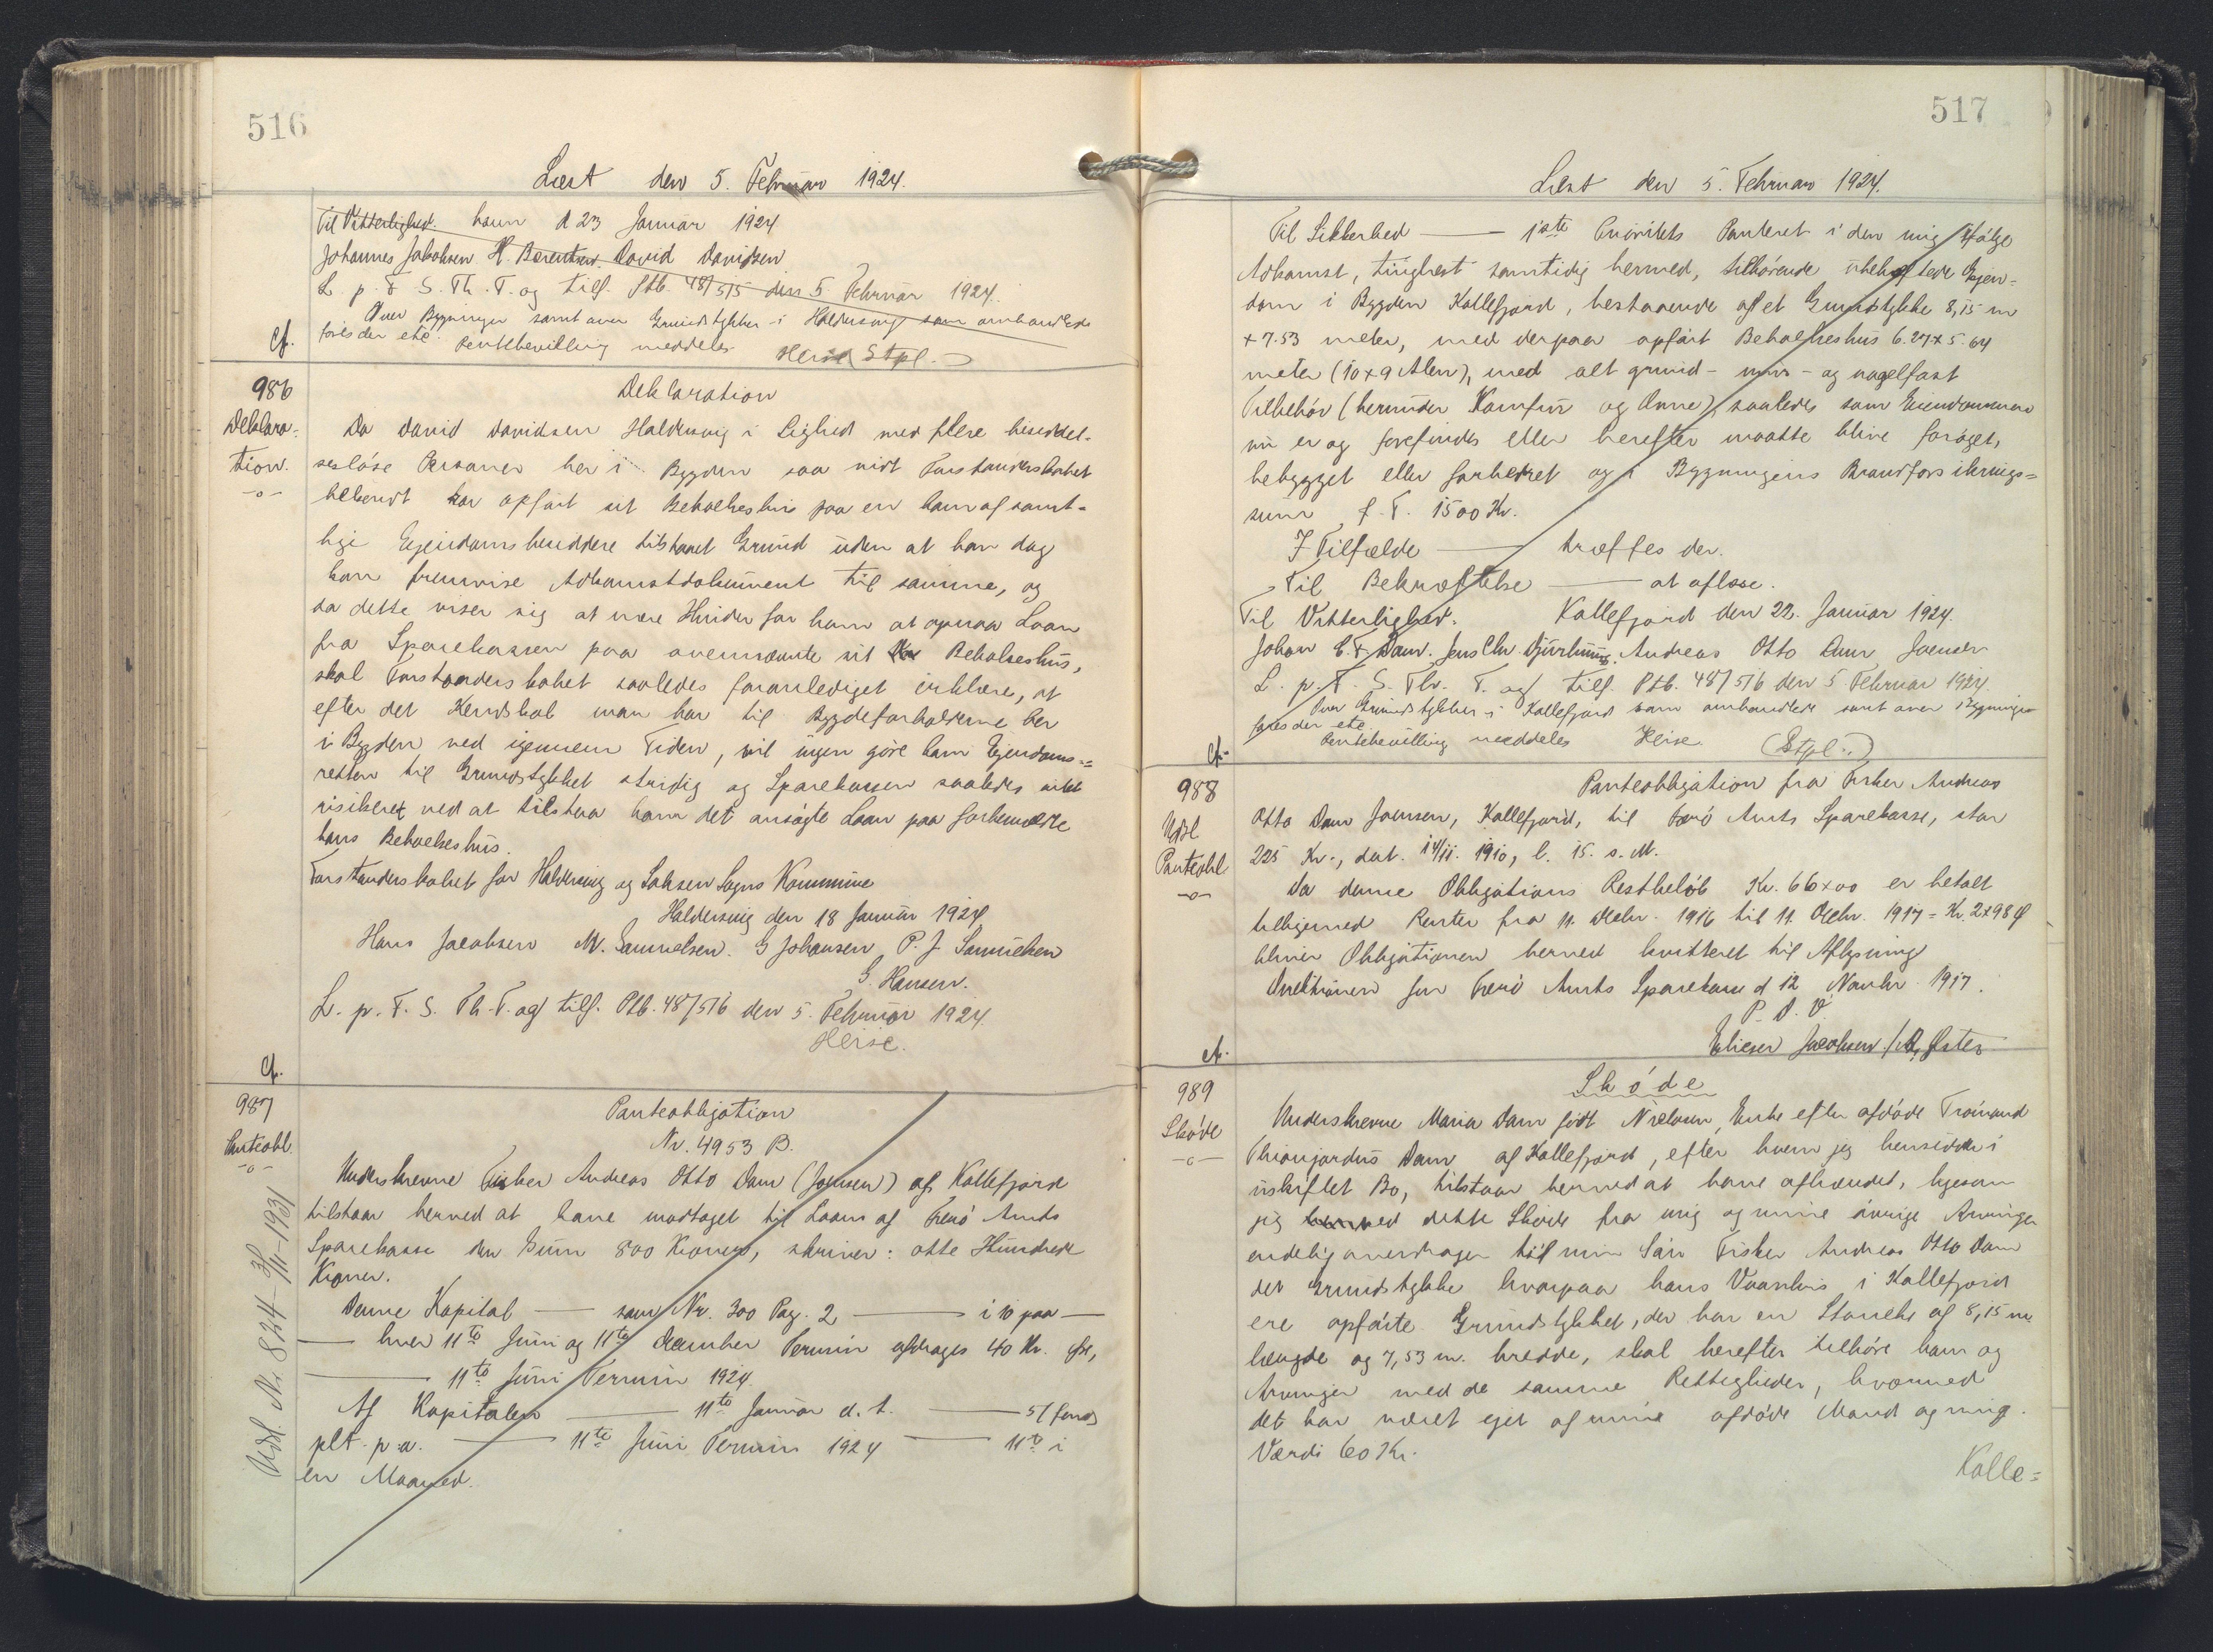 516
Læst den 5. Februar 1924.
Til Vitterlighed. havn d 23 Januar 1924
Johannes Jakobsen H. Berentsen. David Davidsen
L. p. F. S. Th. T. og tilf. Ptb. 48/515 den 5 Februar 1924.
Over Bygninger samt over Grundstykker i Haldersvig som omhandlede
fores der ete. Rentebevilling meddeles Heise Stpl.
cf.
986
Deklara-
tion.
-o-
Deklaration
Da David Davidsen Haldersvig i Lighed med flere besiddel-
sesløse Personer her i Bygden saa vidt Forstanderskabet
bekendt har opført sit Beboelseshus paa en ham af samt-
lige Ejendomsbesiddere tilstaaet Grund uden at han dog
kan fremvise Adkomstdokument til samme, og
da dette viser sig at være Hinder for ham at opnaa Laan
fra Sparekassen paa ovennævnte sit Beboelseshus,
skal Forstanderskabet saaledes foranlediget erklære, at
efter det Kendskab man har til Bygdeforholdene her
i Bygden ned igennem Tiden, vil ingen gøre ham Ejendoms-=
retten til Grundstykket stridig og Sparekassen saaledes intet
risikeret ved at tilstaa ham det ansøgte Laan paa forbemeldte
hans Beboelseshus.
Forstanderskabet for Haldersvig og Saksen Sogns Kommune
Haldersvig den 18 Januar 1924
Hans Jacobsen M. Samuelsen. G Johansen P. J Samuelsen
G. Hansen.
L. p. F. S. Th. T. og tilf. Ptb. 48/516 den 5. Februar 1924.
Heise.
cf.
987
Panteobl.
-o-
Udsl. Nr. 824 - 3/11 - 1931
Panteobligation
Nr. 4953 B.
Underskrevne Fisker Andreas Otto Dam (Joensen) af Kollefjord
tilstaar herved at have modtaget til Laans af Færø Amts
Sparekasse den Sum 800 Kroner, skriver: otte Hundrede
Kroner.
Denne Kapital — som Nr. 300 Pag. 2 — i 10 paa —
— hver 11te Juni og 11te December Termin afdrages 40 Kr. fst,
— 11te Juni Termin 1924.
Af Kapitalen — 11te Januar d. A. — 5/
plt. p. a. — 11te Juni Termin 1924 — 11te i
en Maaned.
517
Læst den 5. Februar 1924.
Til Sikkerhed — 1ste Prioritets Panteret i den mig ifølge
Adkomst, tinglæst samtidig hermed, tilhørende ubehæftede Ejen=
dom i Bygden Kollefjord, bestaaende af et Grundstykke 8,15 m
x 7.53 meter, med derpaa opført Beboelseshus 6.27 x 5.64
meter (10 x 9 Alen), med alt grund- mur- og nagelfast
Tilbehør (herunder Komfur og Ovne), saaledes som Ejendommen
nu er og forefindes eller herefter maatte blive forøget,
bebygget eller forbedret og i Bygningens Brandforsikrings=
sum f. T. 1500 Kr.
I Tilfælde — træffes der.
Til Bekræftelse — at aflæse.
Til Vitterlighed. Kollefjord den 22. Januar 1924.
Johan E. F. Dam. Jens Chr. Djurhuus. Andreas Otto Dam Joensen
L. p. F. S. Th. T. og tilf. Ptb. 48/516 den 5 Februar 1924.
Over Grundstykker i Kollefjord som omhandlede samt over Bygninger
fores der ete
Rentebevilling meddeles Heise. (Stpl..)
cf.
988
Udsl
Panteobl
-o-
Panteobligation fra Fisker Andreas
Otto Dam Joensen, Kollefjord, til Færø Amts Sparekasse, stor
225 Kr., dat. 14/11. 1910, l. 15. s. M.
Da denne Obligations Restbeløb Kr. 66x00 er betalt
tilligemed Renter fra 11. Decbr. 1916 til 11. Decbr. 1917 = Kr. 2x98 Ø
bliver Obligationen herved kvitteret til Aflysning
Direktionen for Færø Amts Sparekasse d 12 Novbr. 1917.
P. D. V.
Elieser Jacobsen / A. Øster
cf.
989
Skøde
-o-
Skøde
Underskrevne Maria Dam født Nielsen, Enke efter afdøde Tróndur
Dam af Kollefjord, efter hvem jeg hensidder i
uskiftet Bo, tilstaar herved at have afhændet, ligesom
jeg ved dette Skøde fra mig og mine øvrige Arvinger
endelig overdrager til min Søn Fisker Andreas Otto Dam
det Grundstykke hvorpaa hans Vaanhus i Kollefjord
ere opførte. Grundstykket, der har en Størrelse af 8,15 m
længde og 7,53 m. bredde, skal herefter tilhøre ham og
Arvinger med de samme Rettigheder, hvormed
det har været ejet af min afdøde Mand og mig.
Værdi 60 Kr.
Kolle=